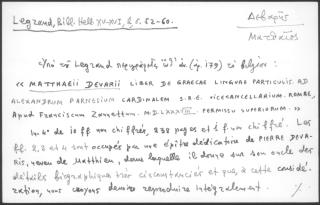 Legrand, Bibl. Hell. XV-XVI, 2, σ. 52-60.
Δεβαρῆς
Ματθαῖος
Ὑπὸ τοῦ Legrand περιγράφεται (ἀρ. 179) τὸ βιβλίον:
« MATTHAEII DEVARII LIBER DE GRAECAE LINGUAE PARTICULIS. AD
ALEXANDRUM FARNESIUM CARDINALEM S.R.E. VICECANCELLARIUM. ROMAE,
Apud Franciscum Zannettum. M.D.LXXXVIII. PERMISSU SUPERIORUM. »
In 4° de 10 ff. non chiffrés, 238 pages et 1 f. non chiffré. Les
ff. 2, 3 et 4 sont occupés par une épître dédicatoire de PIERRE DEVA-
RIS, neveu de Matthieu, dans laquelle il donne sur son oncle des
détails biographiques très circonstanciés et que, à cette considé-
ration, nous croyons devoir reproduire intégralement.